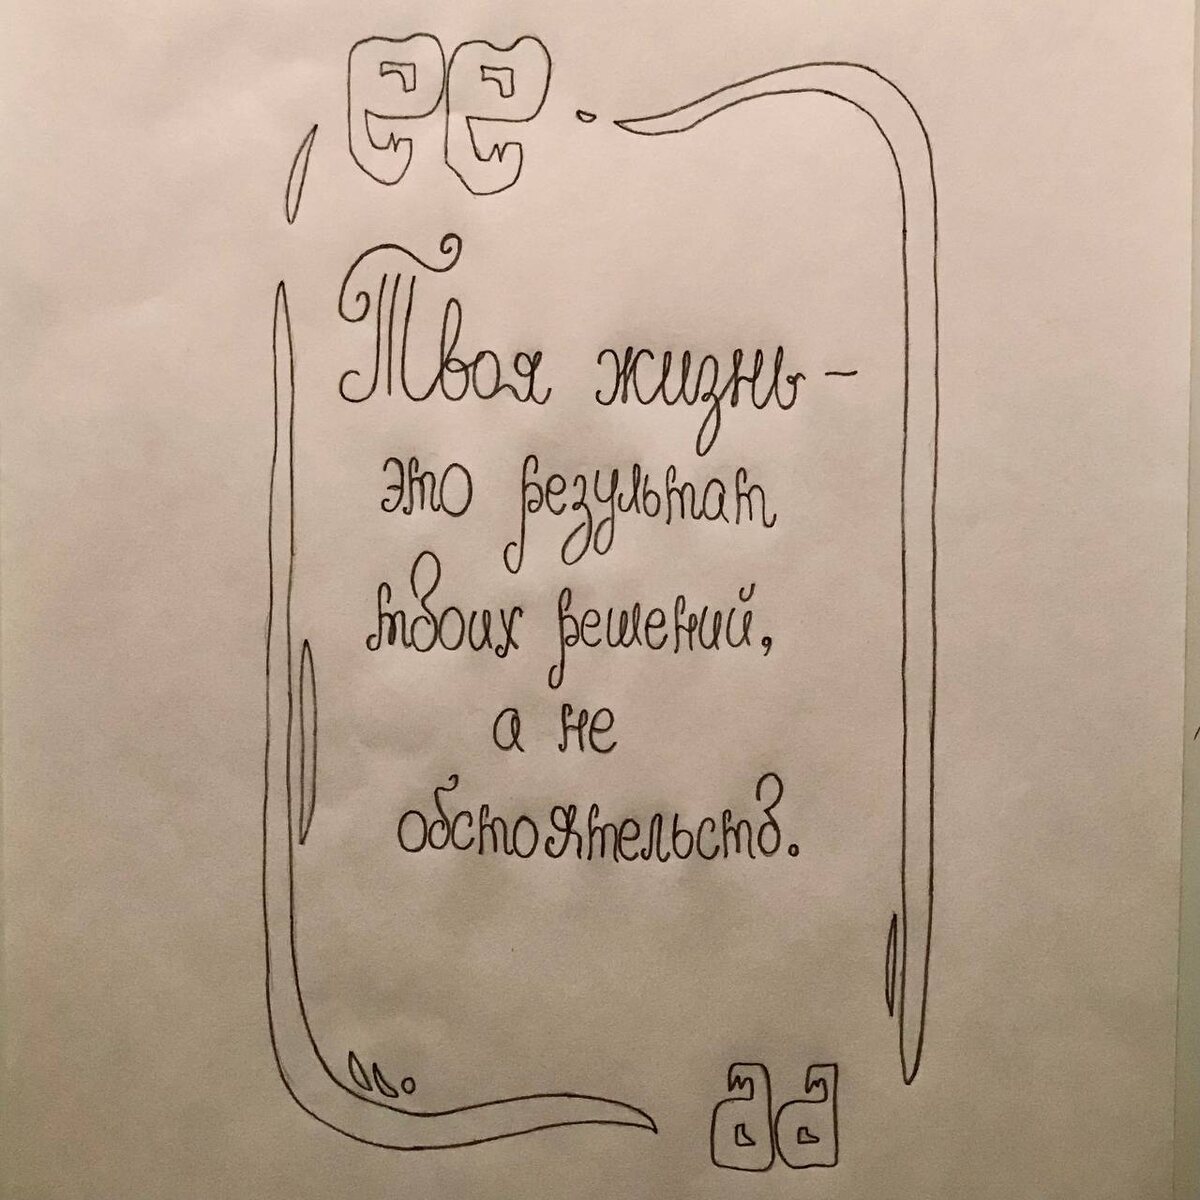 Твоя жизнь –
это результат
твоих решений,
а не
обстоятельств.